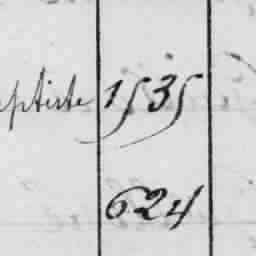 aptiste 1535
624